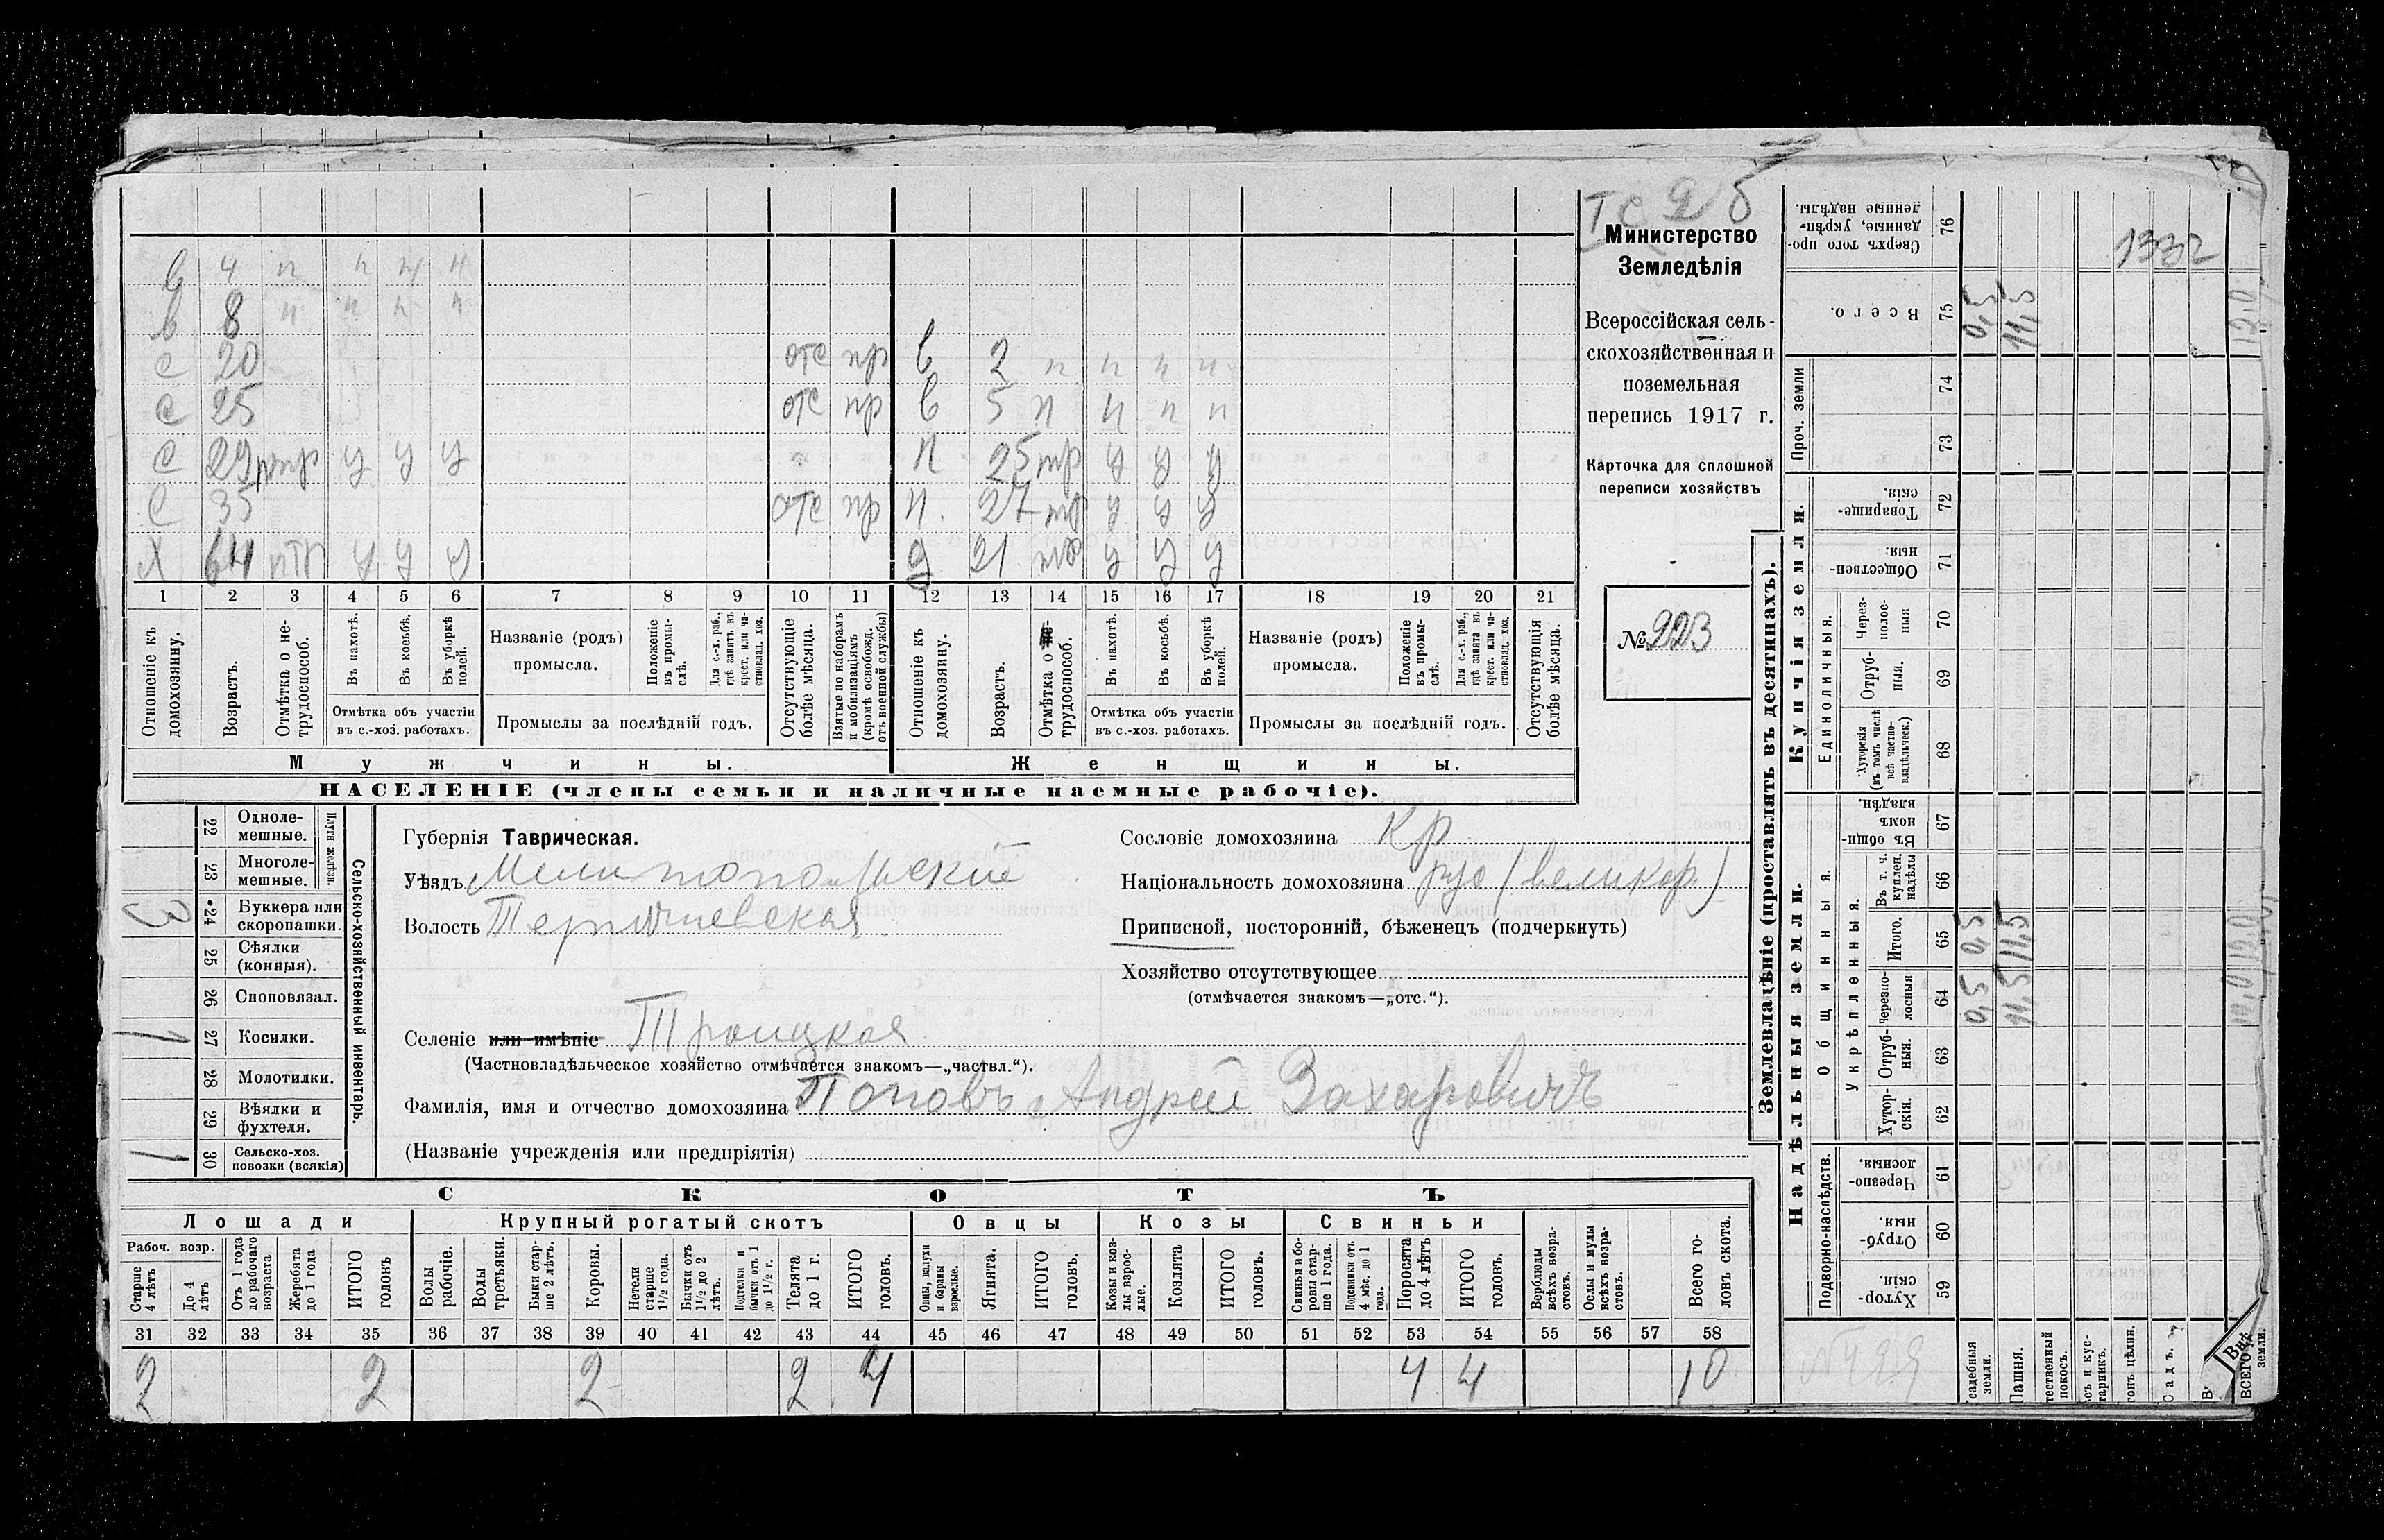 Министерство
Земледѣлія
Всероссійская сель-
скохозяйственная и
поземельная
перепись 1917 г.
Карточка для сплошной
переписи хозяйствъ
№ 223
в 4 н н н н
в 8 н н н н
с 20 отс пр в 2 н н н н
с 25 отс пр в 5 н н н н
с 29 у у у н 25 тр у у у
с 35 отс пр н. 27 тр у у у
х 64 у у у д 21 у у у
1 2 3 4 5 6 7 8 9 10 11 12 13 14 15 16 17 18 19 20 21
Отношеніе къ домохозяину.
Возрастъ.
Отмѣтка о не-трудоспособ.
Въ пахотѣ.
Въ косьбѣ.
Въ уборкѣ полей.
Отмѣтка объ участіи
въ с.-хоз. работахъ.
Названіе (родъ)
промысла.
Положеніе въ промы-слѣ.
Для с.-х. раб., гдѣ занятъ въ крест. или ча-стновлад. хоз.
Промыслы за послѣдній годъ.
Отсутствующіе болѣе мѣсяца.
Взятые по наборамъ и мобилизаціямъ (кромѣ освобожд. отъ военной службы)
Отношеніе къ домохозяину.
Возрастъ.
Отмѣтка о трудоспособ.
Въ пахотѣ.
Въ косьбѣ.
Въ уборкѣ полей.
Отмѣтка объ участіи
въ с.-хоз. работахъ.
Названіе (родъ)
промысла.
Положеніе въ промы-слѣ.
Для с.-х. раб., гдѣ занята въ крест. или ча-стновлад. хоз.
Промыслы за послѣдній годъ.
Отсутствующія болѣе мѣсяца.
Мужчины. Женщины.
НАСЕЛЕНІЕ (члены семьи и наличные наемные рабочіе).
Сельско-хозяйственный инвентарь.
Плуги желѣзн.
22 Одноле-мешные.
23 Многоле-мешные.
3 24 Буккера или скоропашки.
25 Сѣялки (конныя).
26 Сноповязал.
1 27 Косилки.
28 Молотилки.
29 Вѣялки и фухтеля.
1 30 Сельско-хоз. повозки (всякія)
Губернія Таврическая.
Уѣздъ Мелитопольскій
Волость
Селеніе или имѣніе Троицкая
(Частновладѣльческое хозяйство отмѣчается знакомъ—„частвл.“).
Фамилія, имя и отчество домохозяина Поповъ Андрей Захаровичъ
(Названіе учрежденія или предпріятія)
Сословіе домохозяина Кр.
Національность домохозяина рус (великор.)
Приписной, посторонній, бѣженецъ (подчеркнуть)
Хозяйство отсутствующее
(отмѣчается знакомъ—„отс.“).
СКОТЪ
Лошади Крупный рогатый скотъ Овцы Козы Свиньи
Рабоч. возр.
Старше 4 лѣтъ
До 4 лѣтъ
Отъ 1 года до рабочаго возраста
Жеребята до 1 года
ИТОГО головъ
Волы рабочіе.
Волы третьяки.
Быки стар-ше 2 лѣтъ.
Коровы.
Нетели старше 1½ года.
Бычки отъ 1½ до 2 лѣтъ.
Подтелки и бычки отъ 1 до 1½ г.
Телята до 1 г.
ИТОГО головъ.
Овцы, валухи и бараны взрослые.
Ягнята.
ИТОГО головъ.
Козы и коз-лы взрос-лые.
Козлята
ИТОГО головъ.
Свиньи и бо-ровы стар-ше 1 года.
Подсвинки отъ 4 мѣс. до 1 года.
Поросята до 4 лѣтъ
ИТОГО головъ.
Верблюды всѣхъ возра-стовъ.
Ослы и мулы всѣхъ возра-стовъ.
Всего го-ловъ скота.
31 32 33 34 35 36 37 38 39 40 41 42 43 44 45 46 47 48 49 50 51 52 53 54 55 56 57 58
2 2 2 2 4 4 4 10
Землевладѣніе (проставлять въ десятинахъ).
Купчія земли.
Надѣльныя земли.
Сверхъ того про-данные, укрѣп-ленные надѣлы. 76
1332
Всего. 75 0,5 11,5 12,0
Проч. земли 74 73
Товарище-скія. 72
Обществен-ныя. 71
Единоличныя.
Через-полос-ныя 70
Отруб-ныя. 69
Хуторскія (въ томъ числѣ всѣ частно-владѣльческ.) 68
Общинныя.
Въ общи-номъ владѣн. 67
Укрѣпленныя.
Въ т. ч. куплен. надѣлы 66
Итого. 65 0,5 11,5
Черезпо-лосныя 64 0,5 11,5
Отруб-ныя. 63
Хутор-скія. 62
Подворно-наслѣдств.
Черезпо-лосныя. 61
Отруб-ныя. 60
Хутор-скія. 59
садебныя земли.
Пашня.
тественный покосъ.
съ и кус-тарникъ.
гонъ цѣлин.
Садъ.
ВСЕГО земли.